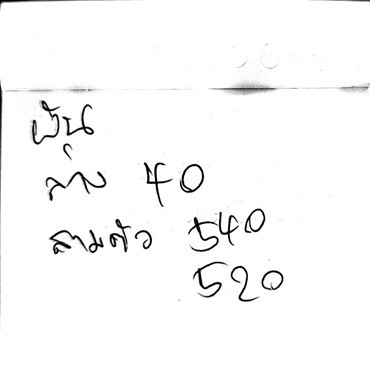 หุ้น
ล่าง 40
สามตัว 540
520